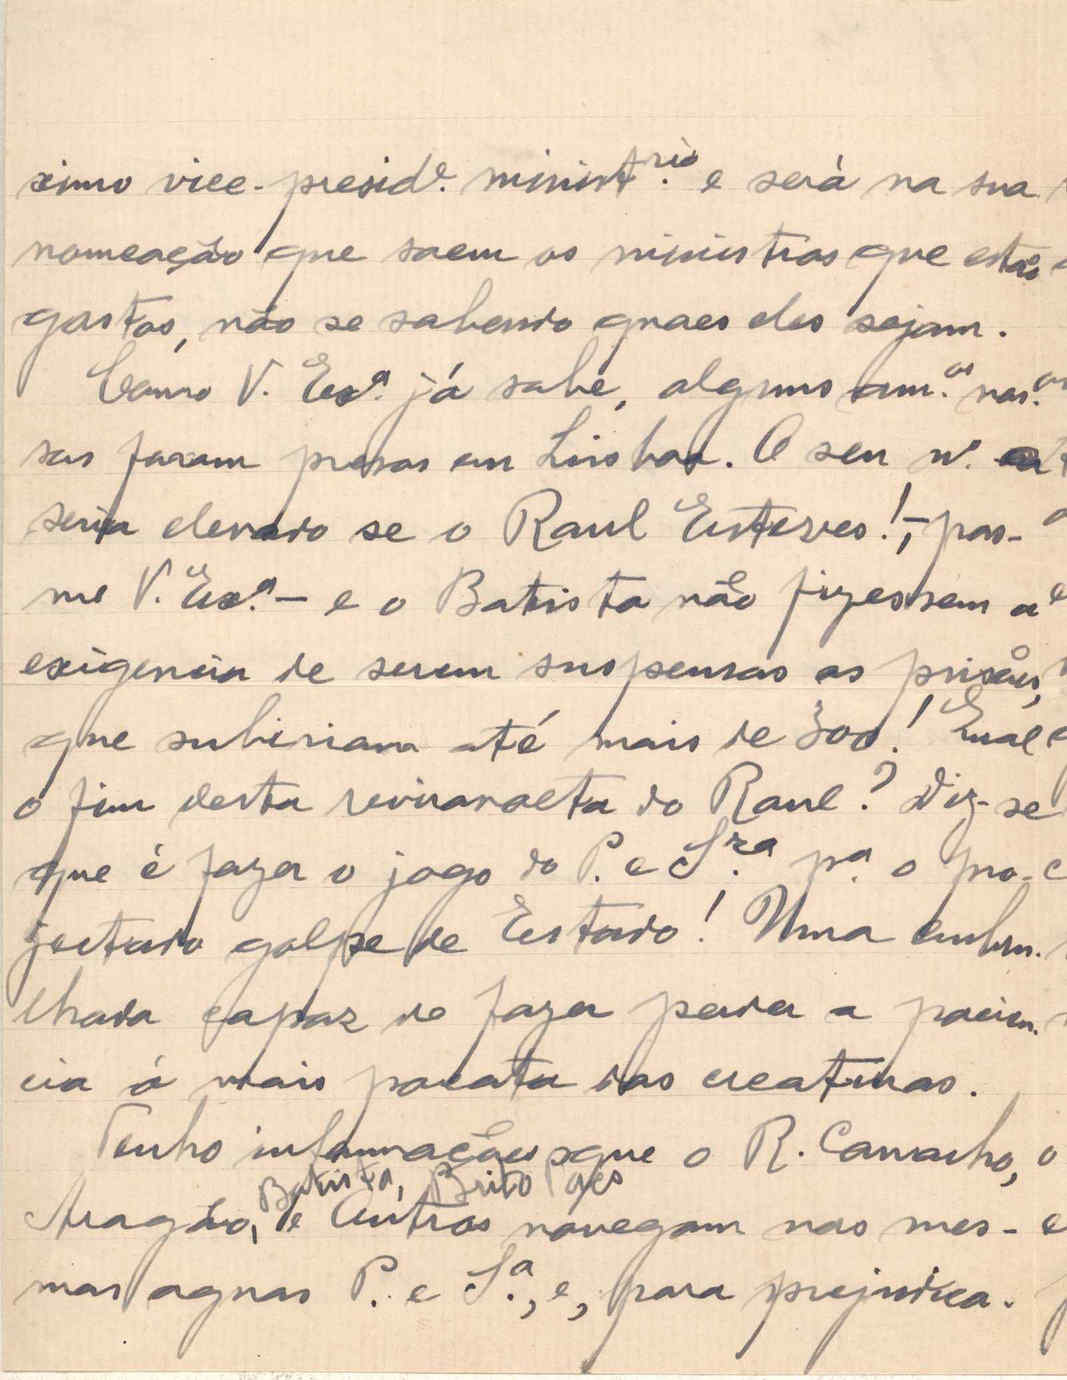 ximo vice-presid.e minist.rio e será na sua
nomeação que saem os ministros que estão
gastos, não se sabendo quaes eles sejam.
Como V. Exa. já sabe, alguns am.os nos.
sos foram presos em Lisboa. O seu n.o
seria elevado se o Raul Esteves!, - pas-
me V. Exa. - e o Batista não fizessem a
exigencia de serem suspensas as prisões,
que subiriam até mais de 300! Qual
o fim desta reviravolta do Raul? Diz-se
que é fazer o jogo do P. e S.ra p.a o pro-
jectado golpe de Estado! Uma embru-
lhada capaz de fazer perder a pacien-
cia á mais pacata das creaturas.
Tenho informações que o R. Camacho, o
Batista, Brito Paes
Aragão, e outros navegam nas mes-
mas aguas P. e S.a, e, para prejudica-